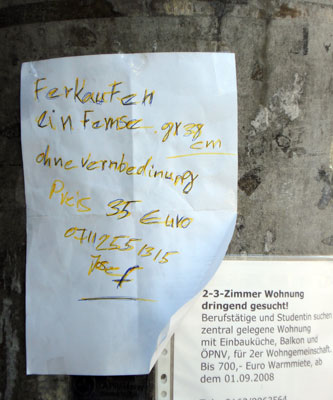 Ferkaufen
ein Femse gr 38
cm
ohne vernbedinung
Preis 35 Euro
0711 2551315
Josef
2-3-Zimmer Wohnung
dringend gesucht!
Berufstätige und Studentin suchen
zentral gelegene Wohnung
mit Einbauküche, Balkon und
ÖPNV, für 2er Wohngemeinschaft.
Bis 700,- Euro Warmmiete, ab
dem 01.09.2008